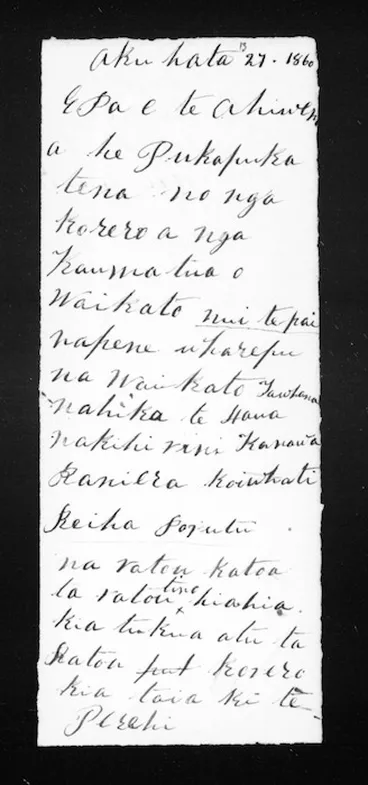 Akuhata 27. 1860
E Pa e te Ahiwe
a he Pukapuka
tena no nga
korero a nga
kaumatua o
Waikato nui te pai
napene wharepu
na Waikato Tawhana
nahika te Haua
nakihi rini Kanawa
Raniera koiwhati
Reiha Poputu
na ratou katoa
ta ratou tino hiahia.
kia tukua atu ta
Ratou korero
kia taia ki te
Perehi